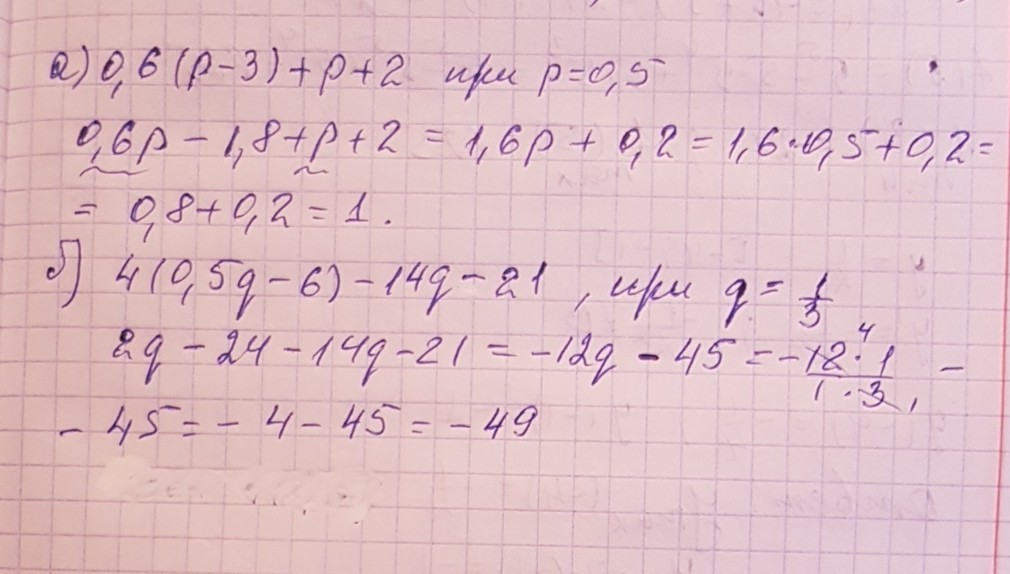 а) 0,6(p-3)+p+2 при p=0,5
0,6p - 1,8+p+2 = 1,6p + 0,2 = 1,6·0,5+0,2=
= 0,8+0,2 = 1.
б) 4(0,5q-6)-14q-21, при q= 1/3
2q-24-14q-21 = -12q - 45 = - 12 4·1/1·3 1 -
- 45 = - 4 - 45 = - 49